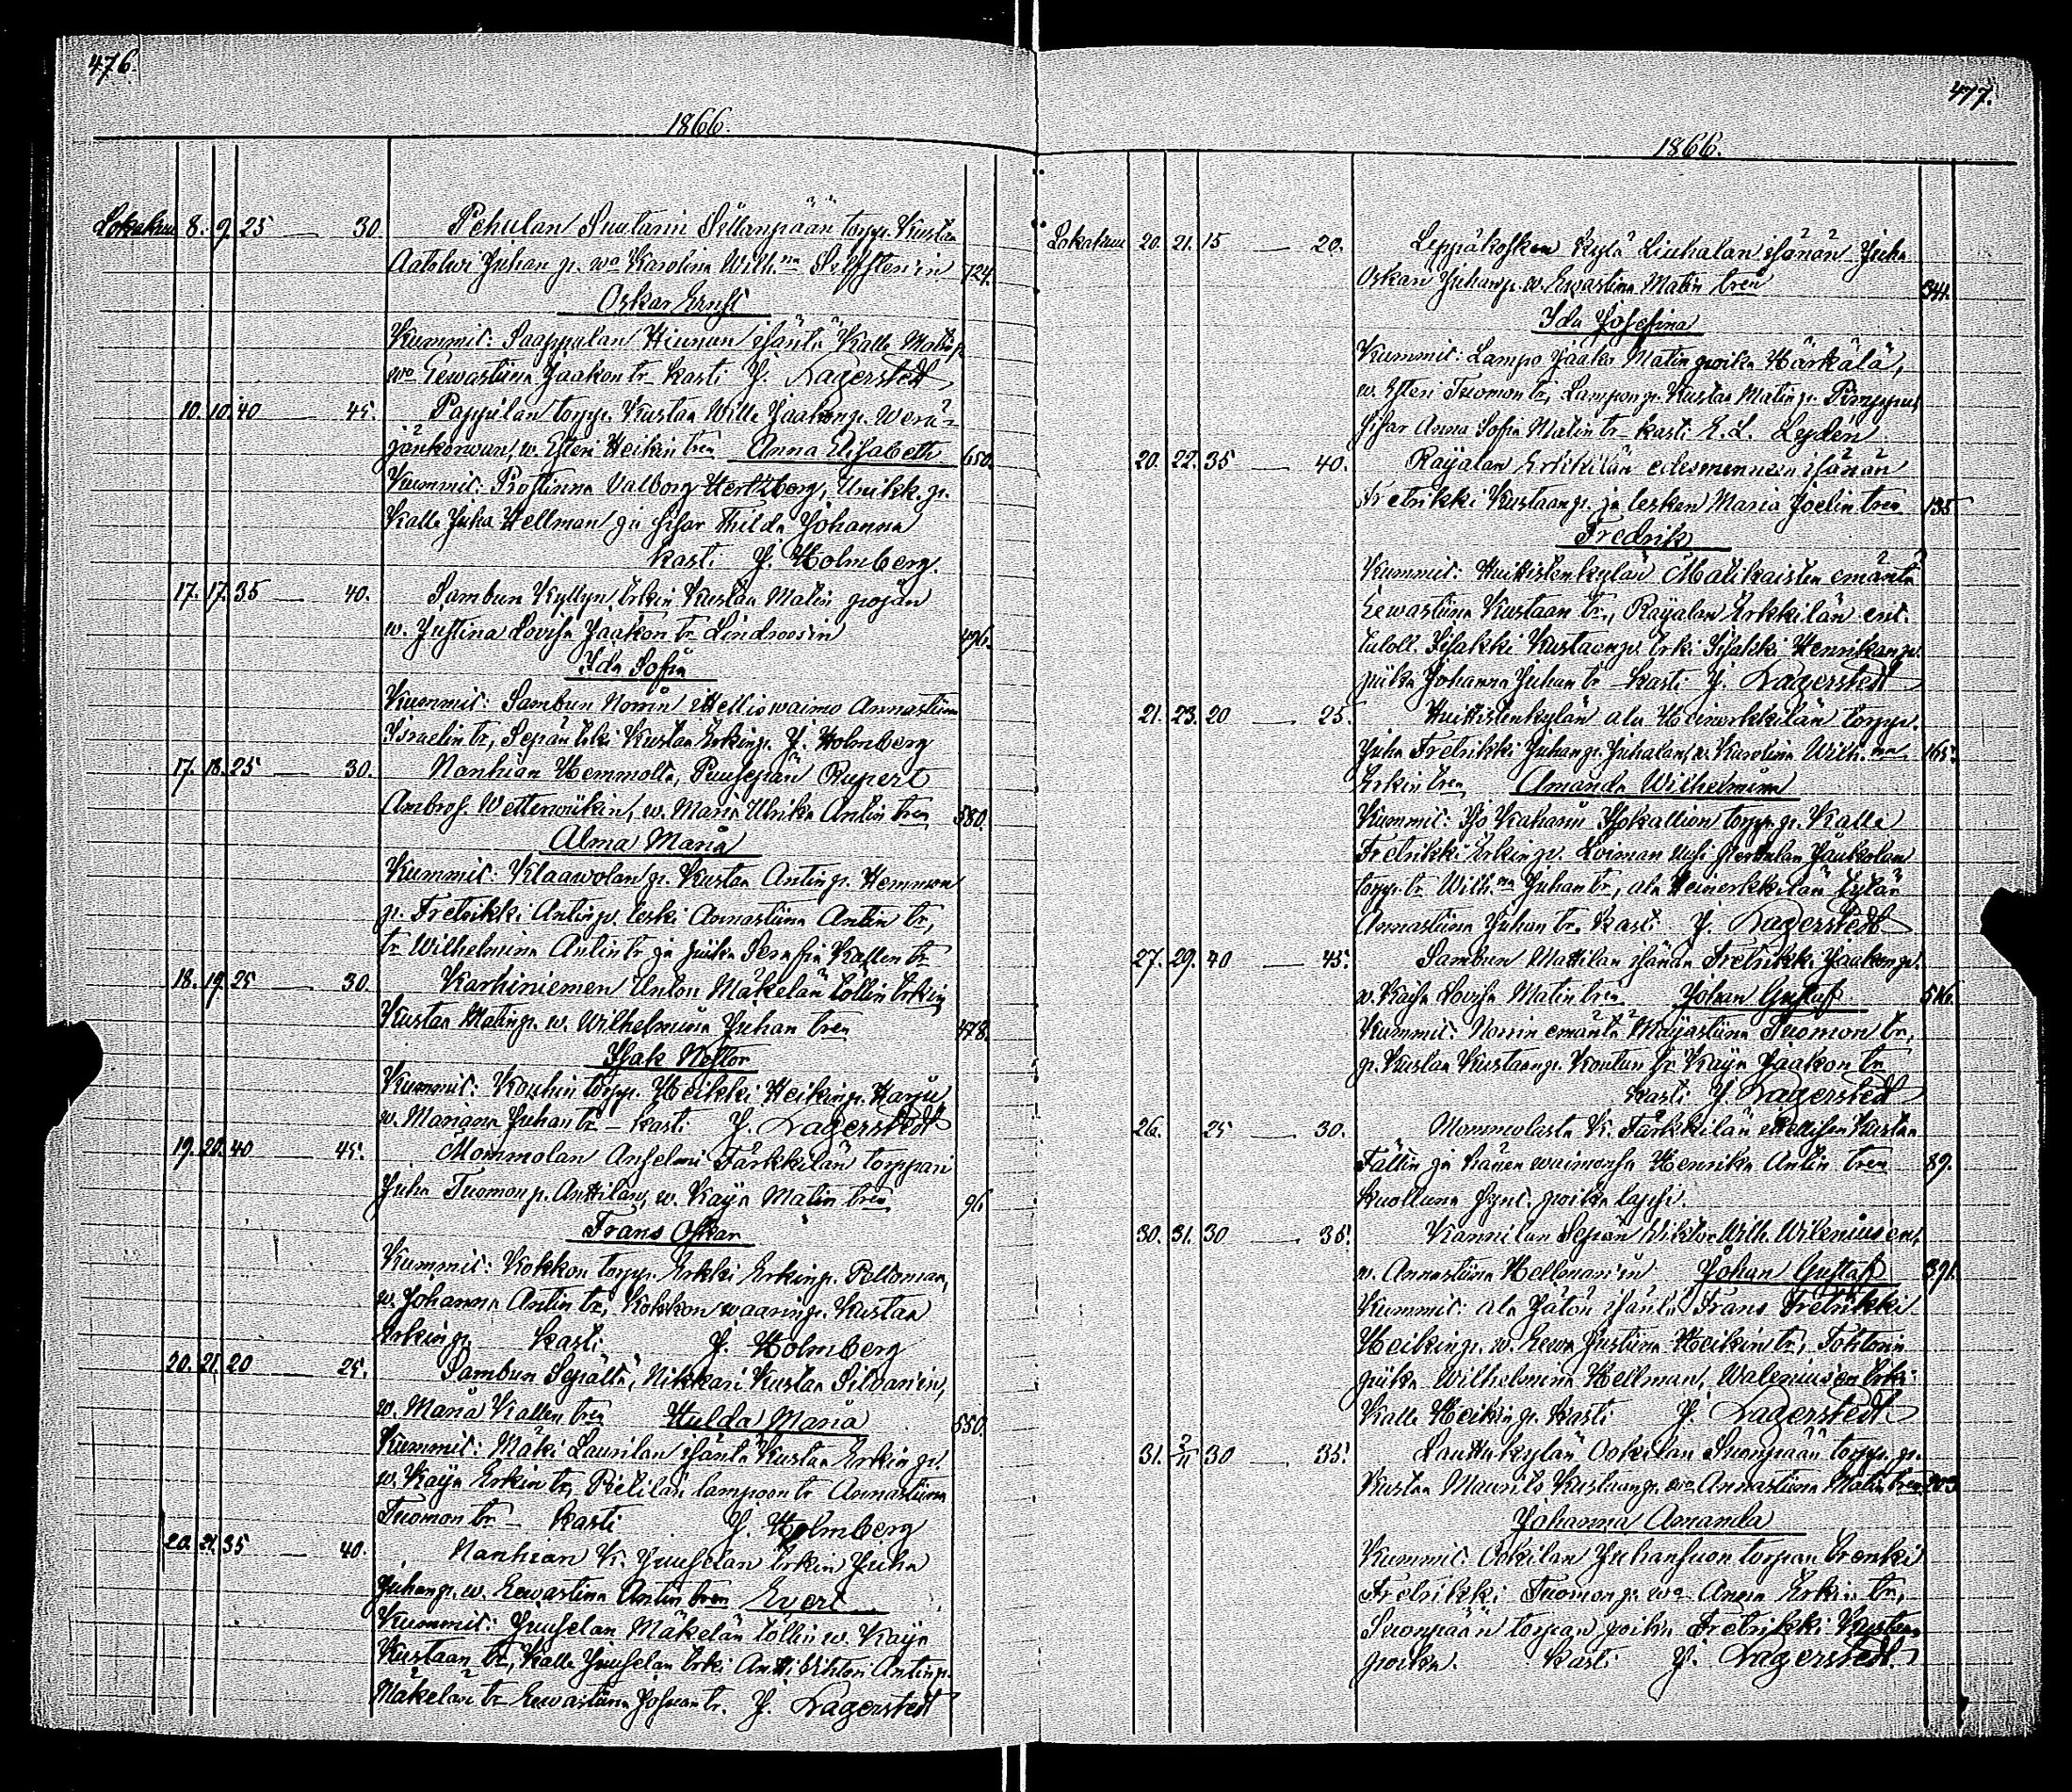 476.
1866.
Lokakuu 8. 9. 25 — 30. Pehulan Suutarin Sillanpään torpp. Kustaa
Aatolvi Juhan p. wo Karolina Wilh.na Selfsten'in 724.
Oskar Ernst
Kummit: Saappalan Hiunun isäntä Kalle Matinp.
wo Eewastiina Jaakon tr. kasti J. Lagerstedt
10. 10. 40 — 45. Pappilan torpp. Kustaa Wille Jaakonp. Weru=
jänkorwun, w. Esteri Heikin tren Anna Elisabeth 650.
Kummit: Prostinna Valborg Hertzberg, Unikk. p.
Kalle Juha Hellman ja sisar Thilda Johanna
kasti J. Holmberg.
17. 17. 35 — 40. Sambun Kyllyn Erkin Kustaa Matin pojan
w. Justina Lovisa Jaakon tr Lindroosin 496.
Ida Sofia
Kummit: Sambun Norrin Hellis waimo Annastiina
Israelin tr, Sepän Erki Kustaa Erkinp. J. Holmberg
17. 18. 25 — 30. Nanhian Hemmolta, Puusepän Rupert
Ambros. Wetterwiikin, w. Maria Ulrika Antin tren 580.
Alma Maria
Kummit: Klaawolan p. Kustaa Antin p. Hemmon
p. Fretrikki Antinp. leski Annastiina Antin tr,
tr Wilhelmina Antin tr ja piika Serafia Kallen tr
18. 19. 25 — 30. Karhiniemen Anton Mäkelän töllin Erkin
Kustaa Matinp. w. Wilhelmiina Juhan tren 478.
Isak Nestor
Kummit: Koutun torpp. Heikki Heikinp. Harju
w. Mariana Juhan tr — kasti J. Lagerstedt
19. 20. 40 — 45. Mommolan Anselmi Färkkilän torppari
Juha Tuomon p. Anttilan, w. Kaija Matin tren 96.
Frans Oskar
Kummit: Kokkon torpp. Erkki Erkinp. Peltoman,
w. Johanna Antin tr, Kokkon waarinp. Kustaa
Erkinp. kasti J. Holmberg
20. 21. 20 — 25. Sambun Sepältä, Nikkari Kustaa Silvan'in,
w. Maria Kallen tren Hulda Maria 550.
Kummit: Mäki Laurilan isäntä Kustaa Erkin p.
w. Kaija Erkin tr, Pietilän lampon tr Annastiina
Tuomon tr — kasti J. Holmberg
20. 21. 35 — 40. Nanhian K. Juuselan Erkin Juha
Juhanp. w. Eewastina Antin tren Evert
Kummit: Juuselan Mäkelän töllin w. Kaija
Kustaan tr, Kalle Juuselan Erki Antti Wihtori Antinp.
Mäkelän tr Eewastiina Juhan tr. J. Lagerstedt
477.
1866.
Lokakuu 20. 21. 15 — 20. Leppäkosken kylä Liuhalan isänän Juha
Oskan Juhanp. w. Ewastina Matin tren 344.
Ida Josefina
Kummit: Lampo Jaako Matin poika Härkälä,
w. Esteri Tuomon tr, Lampon p. Kustaa Matin p.
sisar Anna Sofia Matin tr — kasti E. L. Leyden
20. 22. 35 — 40. Raijalan Erkkilän edesmennen isänän
Fretrikki Kustaan p. ja lesken Maria Joelin tren 135
Fredrik
Kummit: Huittistenkylän Matikaisten emäntä
Eewastiina Kustaan tr, Raijalan Erkkilän ent.
taloll. Iisakki Kustaanp. Erki Iisakki Henrikanp.
piika Johanna Juhan tr kasti J. Lagerstedt
21. 23. 20 — 25. Huittistenkylän ala Heinerkkilän torpp.
Juha Fretrikki Juhanp. Juhalan, w. Karolina Wilh.na 165.
Erkin tren Amanda Wilhelmina
Kummit: Iso Kaharin Isokallion torpp. p. Kalle
Fretrikki Erkin p. Loiman Jaakolan
torpp. tr Wilh.na Juhan tr, ala Heinerkkilän
Annastiina Juhan tr. kasti J. Lagerstedt
27. 29. 40 — 45. Sambun Mattilan isänän Fretrikki Jaakonp.
w. Kaisa Lovisa Matin tren Johan Gustaf 516.
Kummit: Norrin emäntä Maijastiina Tuomon tr,
p. Kustaa Kustaanp. Koutun tr Kaija Jaakon tr
kasti J. Lagerstedt
26. 25 — 30. Mommolasta K. Färkkilän itellisen Kustaa
Fällin ja hänen waimonsa Henrika Antin tren 89.
kuolluna synt. poika lapsi.
30. 31. 30 — 35. Kannilan Sepän Wiktor Wilh. Wileniusen,
w. Annastiina Hellman'in Johan Gustaf 391.
Kummit: ala Jaton isäntä Frans Fretrikki
Heikinp. w. Eewa Justiina Heikin tr, Tohtorin
piika Wilhelmina Hellman, Waleniusen Erki
Kalle Heikin p. kasti J. Lagerstedt
31. 2/11 30 — 35. Lauttakylän Ookilan Suonpään torpp. p.
Kustaa Maurits Kustaanp. wo Annastiina Matin tren 203
Johanna Amanda
Kummit: Ookilan Juhansuon torpan trenki
Fretrikki Tuomon p. wo Anna Erkin tr,
Suonpään torpan poika Fretrikki Kustaa
poika. kasti J. Lagerstedt.